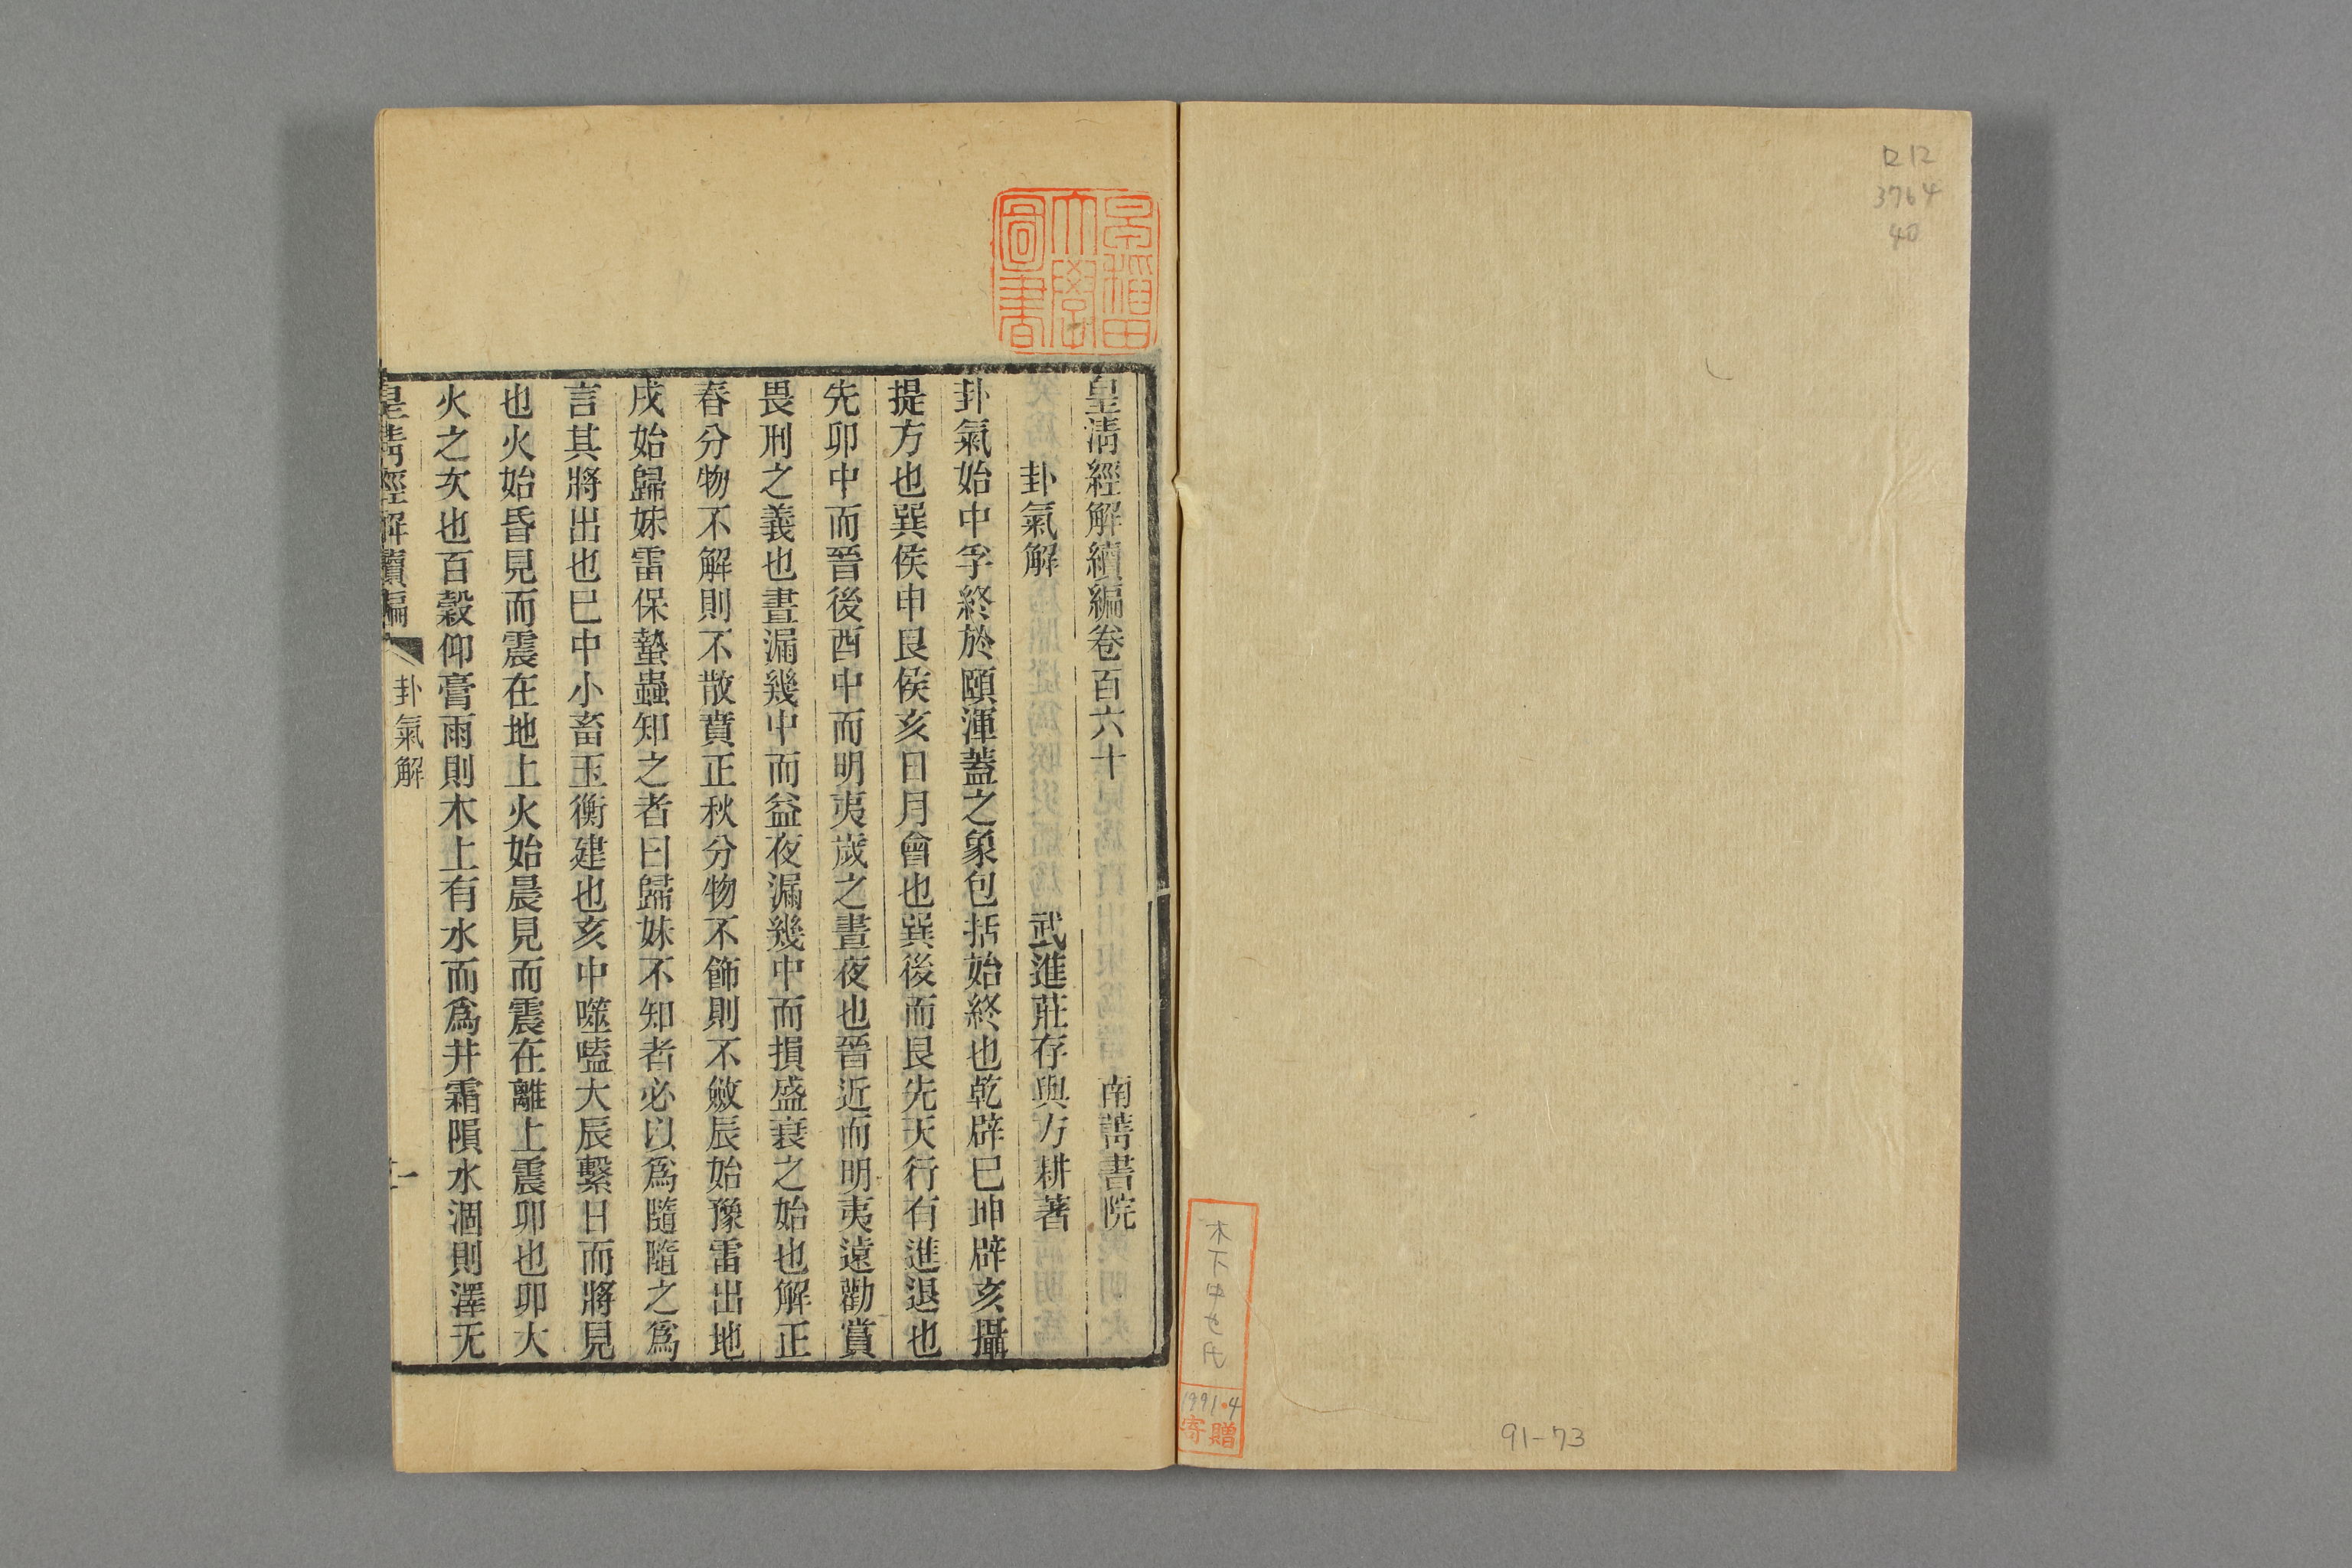 ロ12
3764
40
木下
1991.4
寄贈
91-73
早稲田
大學
圖書
皇清經解續編卷百六十 南菁書院
卦氣解 武進莊存與方耕著
卦氣始中孚終於頤渾蓋之象包括始終也乾辟巳坤辟亥攝
提方也巽侯申艮侯亥日月會也巽後而艮先天行有進退也
先卯中而晉後酉中而明夷歲之晝夜也晉近而明夷遠勸賞
畏刑之義也晝漏幾中而益夜漏幾中而損盛衰之始也解正
春分物不解則不散賁正秋分物不飾則不斂辰始豫雷出地
戌始歸妹雷保蟄蟲知之者曰歸妹不知者必以爲隨隨之爲
言其將出也巳中小畜玉衡建也亥中噬嗑大辰繫日而將見
也火始昏見而震在地上火始晨見而震在離上震卯也卯大
火之次也百穀仰膏雨則木上有水而爲井霜隕水涸則澤无
皇清經解續編 卦氣解 一